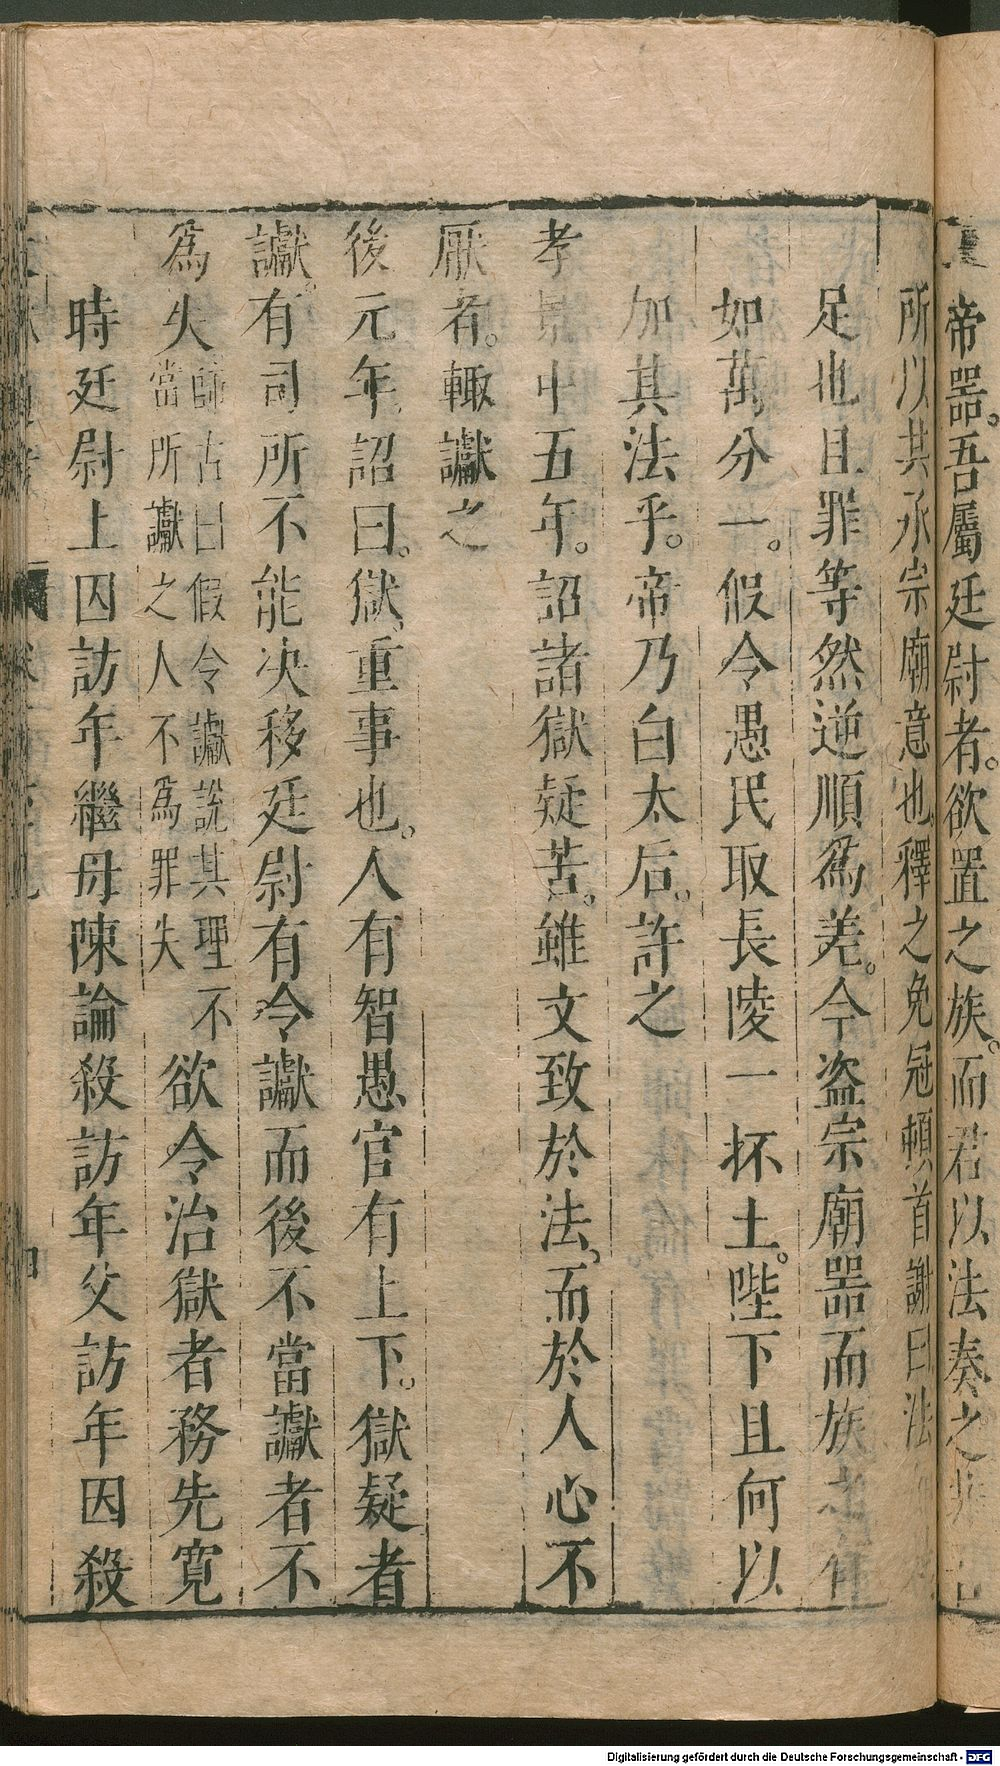 帝器。吾屬廷尉者。欲置之族。而君以法奏之
所以共承宗廟意也釋之免冠頓首謝曰法
足也且罪等然逆順為差。今盗宗廟器而族
如萬分一。假令愚民取長陵一抔土。陛下且何以
加其法乎。帝乃白太后。許之
孝景中五年。詔諸獄疑苦。雖文致於法。而於人心不
厭者。輙讞之
後元年。詔曰。獄重事也。人有智愚官有上下。獄疑者
讞。有司所不能決移廷尉有令讞而後不當讞者不
為失師古曰假令讞說其理不
當所讞之人不為罪失欲令治獄者務先寛
時廷尉上囚訪年繼母陳論殺訪年父訪年因殺
Digitalisierung gefördert durch die Deutsche Forschungsgemeinschaft - DFG